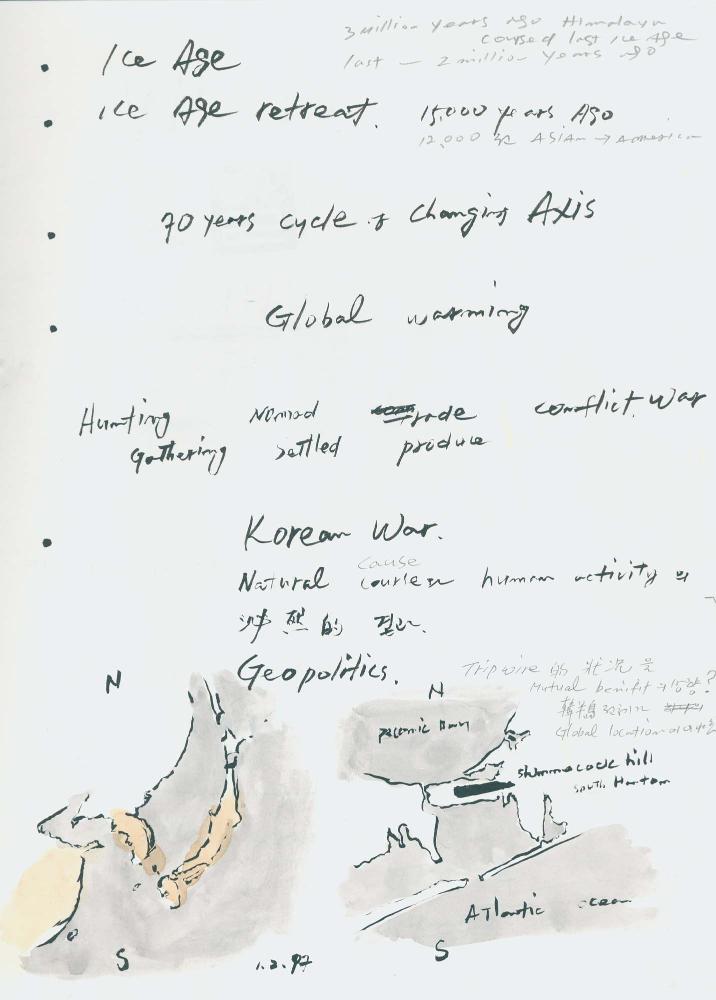 3 million years ago Himalaya
caused last ice Age
last — 2 million years ago
Ice Age
Ice Age retreat. 15,000 years Ago
12,000 Asian → America
70 years cycle of changing Axis
Global warming
Hunting Nomad trade conflict. War
Gathering settled produce
Korean War.
cause
Natural course human activity 의
的 결과.
Geopolitics.
Tripwire 的 狀况 을
Mutual benefit 의 상황?
Global location
N
N
peconic Bay
shinnecock hill
south Hampton
Atlantic ocean
S
S
1.2.97